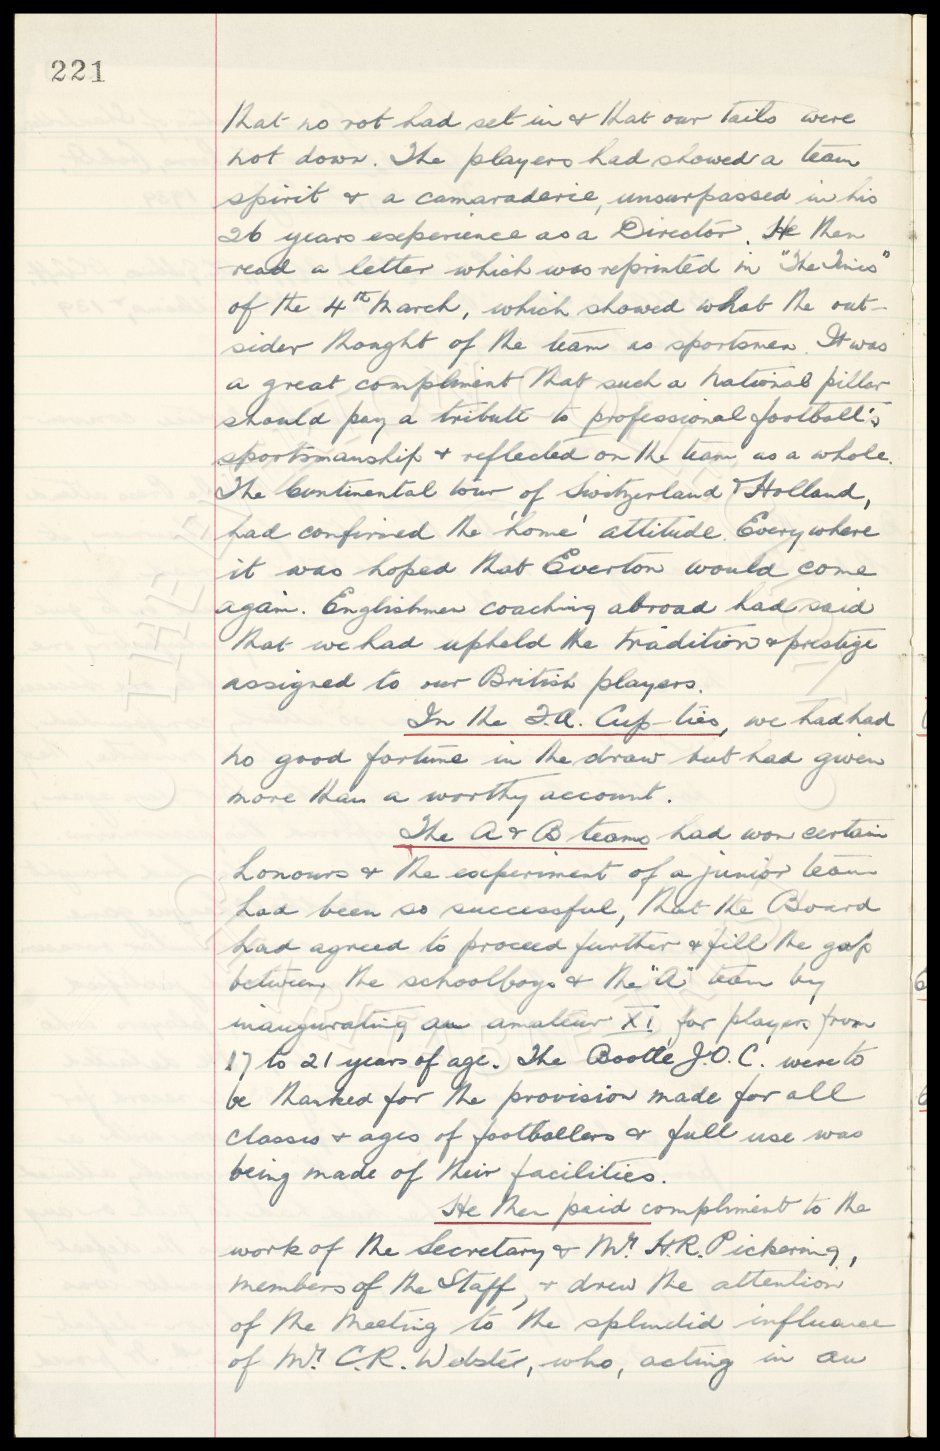 221
that no rot had set in & that our tails were
not down. The players had showed a team
spirit & a camaraderie, unsurpassed in his
26 years experience as a Director. He then
read a letter which was reprinted in "The Times"
of the 4th March, which showed what the out-
sider thought of the team as sportsmen. It was
a great compliment that such a national pillar
should pay a tribute to professional football's
sportsmanship & reflected on the team as a whole.
The Continental tour of Switzerland & Holland,
had confirmed the 'home' attitude. Everywhere
it was hoped that Everton would come
again. Englishmen coaching abroad had said
that we had upheld the tradition & prestige
assigned to our British players.
In the F.A. Cup-ties, we had had
no good fortune in the draw but had given
more than a worthy account.
The A & B teams had won certain
honours & the experiment of a junior team
had been so successful, that the Board
had agreed to proceed further & fill the gap
between the schoolboys & the "A" team by
inaugurating an amateur XI for players from
17 to 21 years of age. The Bootle J.O.C. were to
be thanked for the provision made for all
classes & ages of footballers & full use was
being made of their facilities.
He then paid compliment to the
work of the Secretary & Mr. H.R. Pickering,
members of the Staff, & drew the attention
of the Meeting to the splendid influence
of Mr. C.R. Webster, who, acting in an